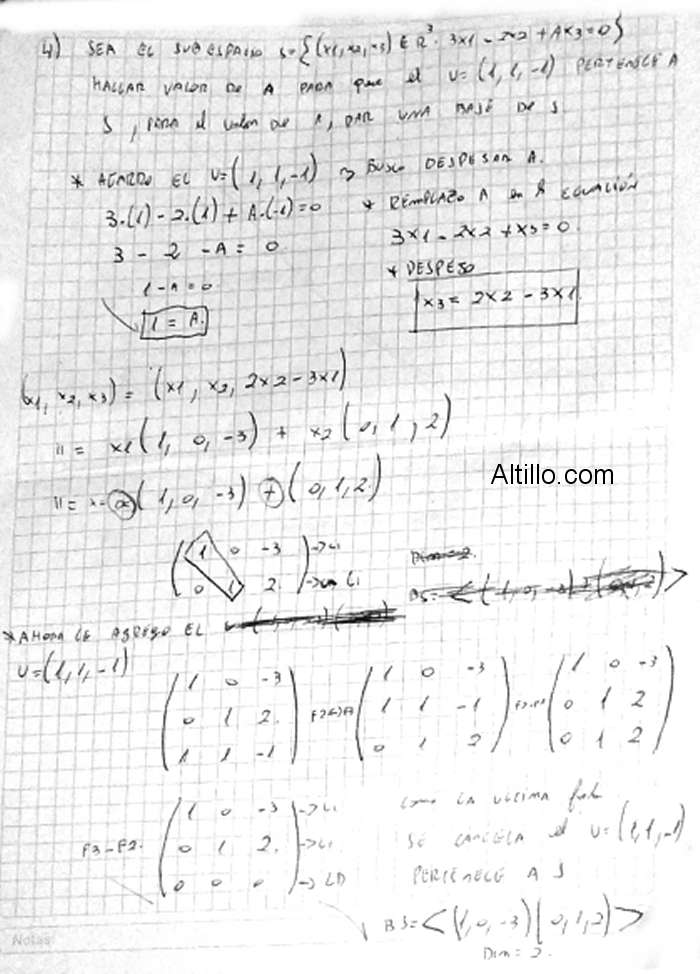 4) SEA EL SUBESPACIO S={(x1,x2,x3) ∈ R³ : 3x1 - 2x2 + Ax3=0}
HALLAR VALOR DE A PARA que el U=(1,1,-1) PERTENECE A
S, PARA el valor DE A, DAR UNA BASE DE S.
* AGARRO EL U=(1,1,-1) → BUSCO DESPESAR A.
3.(1) - 2.(1) + A.(-1)=0
3 - 2 - A = 0.
1 - A = 0
1 = A.
* REMPLAZO A en la ECUACIÓN
3x1 - 2x2 + x3 = 0.
* DESPEJO
x3 = 2x2 - 3x1
(x1, x2, x3) = (x1, x2, 2x2 - 3x1)
"= x1(1, 0, -3) + x2(0,1,2)
"= α(1,0,-3) + (0,1,2)
(1 0 -3)→Li
(0 1 2.)→Li
Dim=2.
BS=<(1,0,-3) >
* AHORA LE AGREGO EL
U=(1,1,-1)
(1 0 -3)
(0 1 2.)
(1 1 -1)
F2↔F3
(1 0 -3)
(1 1 -1)
(0 1 2)
F2-F1
(1 0 -3)
(0 1 2)
(0 1 2)
F3-F2.
(1 0 -3)→Li
(0 1 2.)→Li
(0 0 0)→LD
como LA ULTIMA fila
SE CANCELA el U=(1,1,-1)
PERTENECE A S
BS=<(1,0,-3)(0,1,2)>
Dim=2.
Altillo.com
Notas